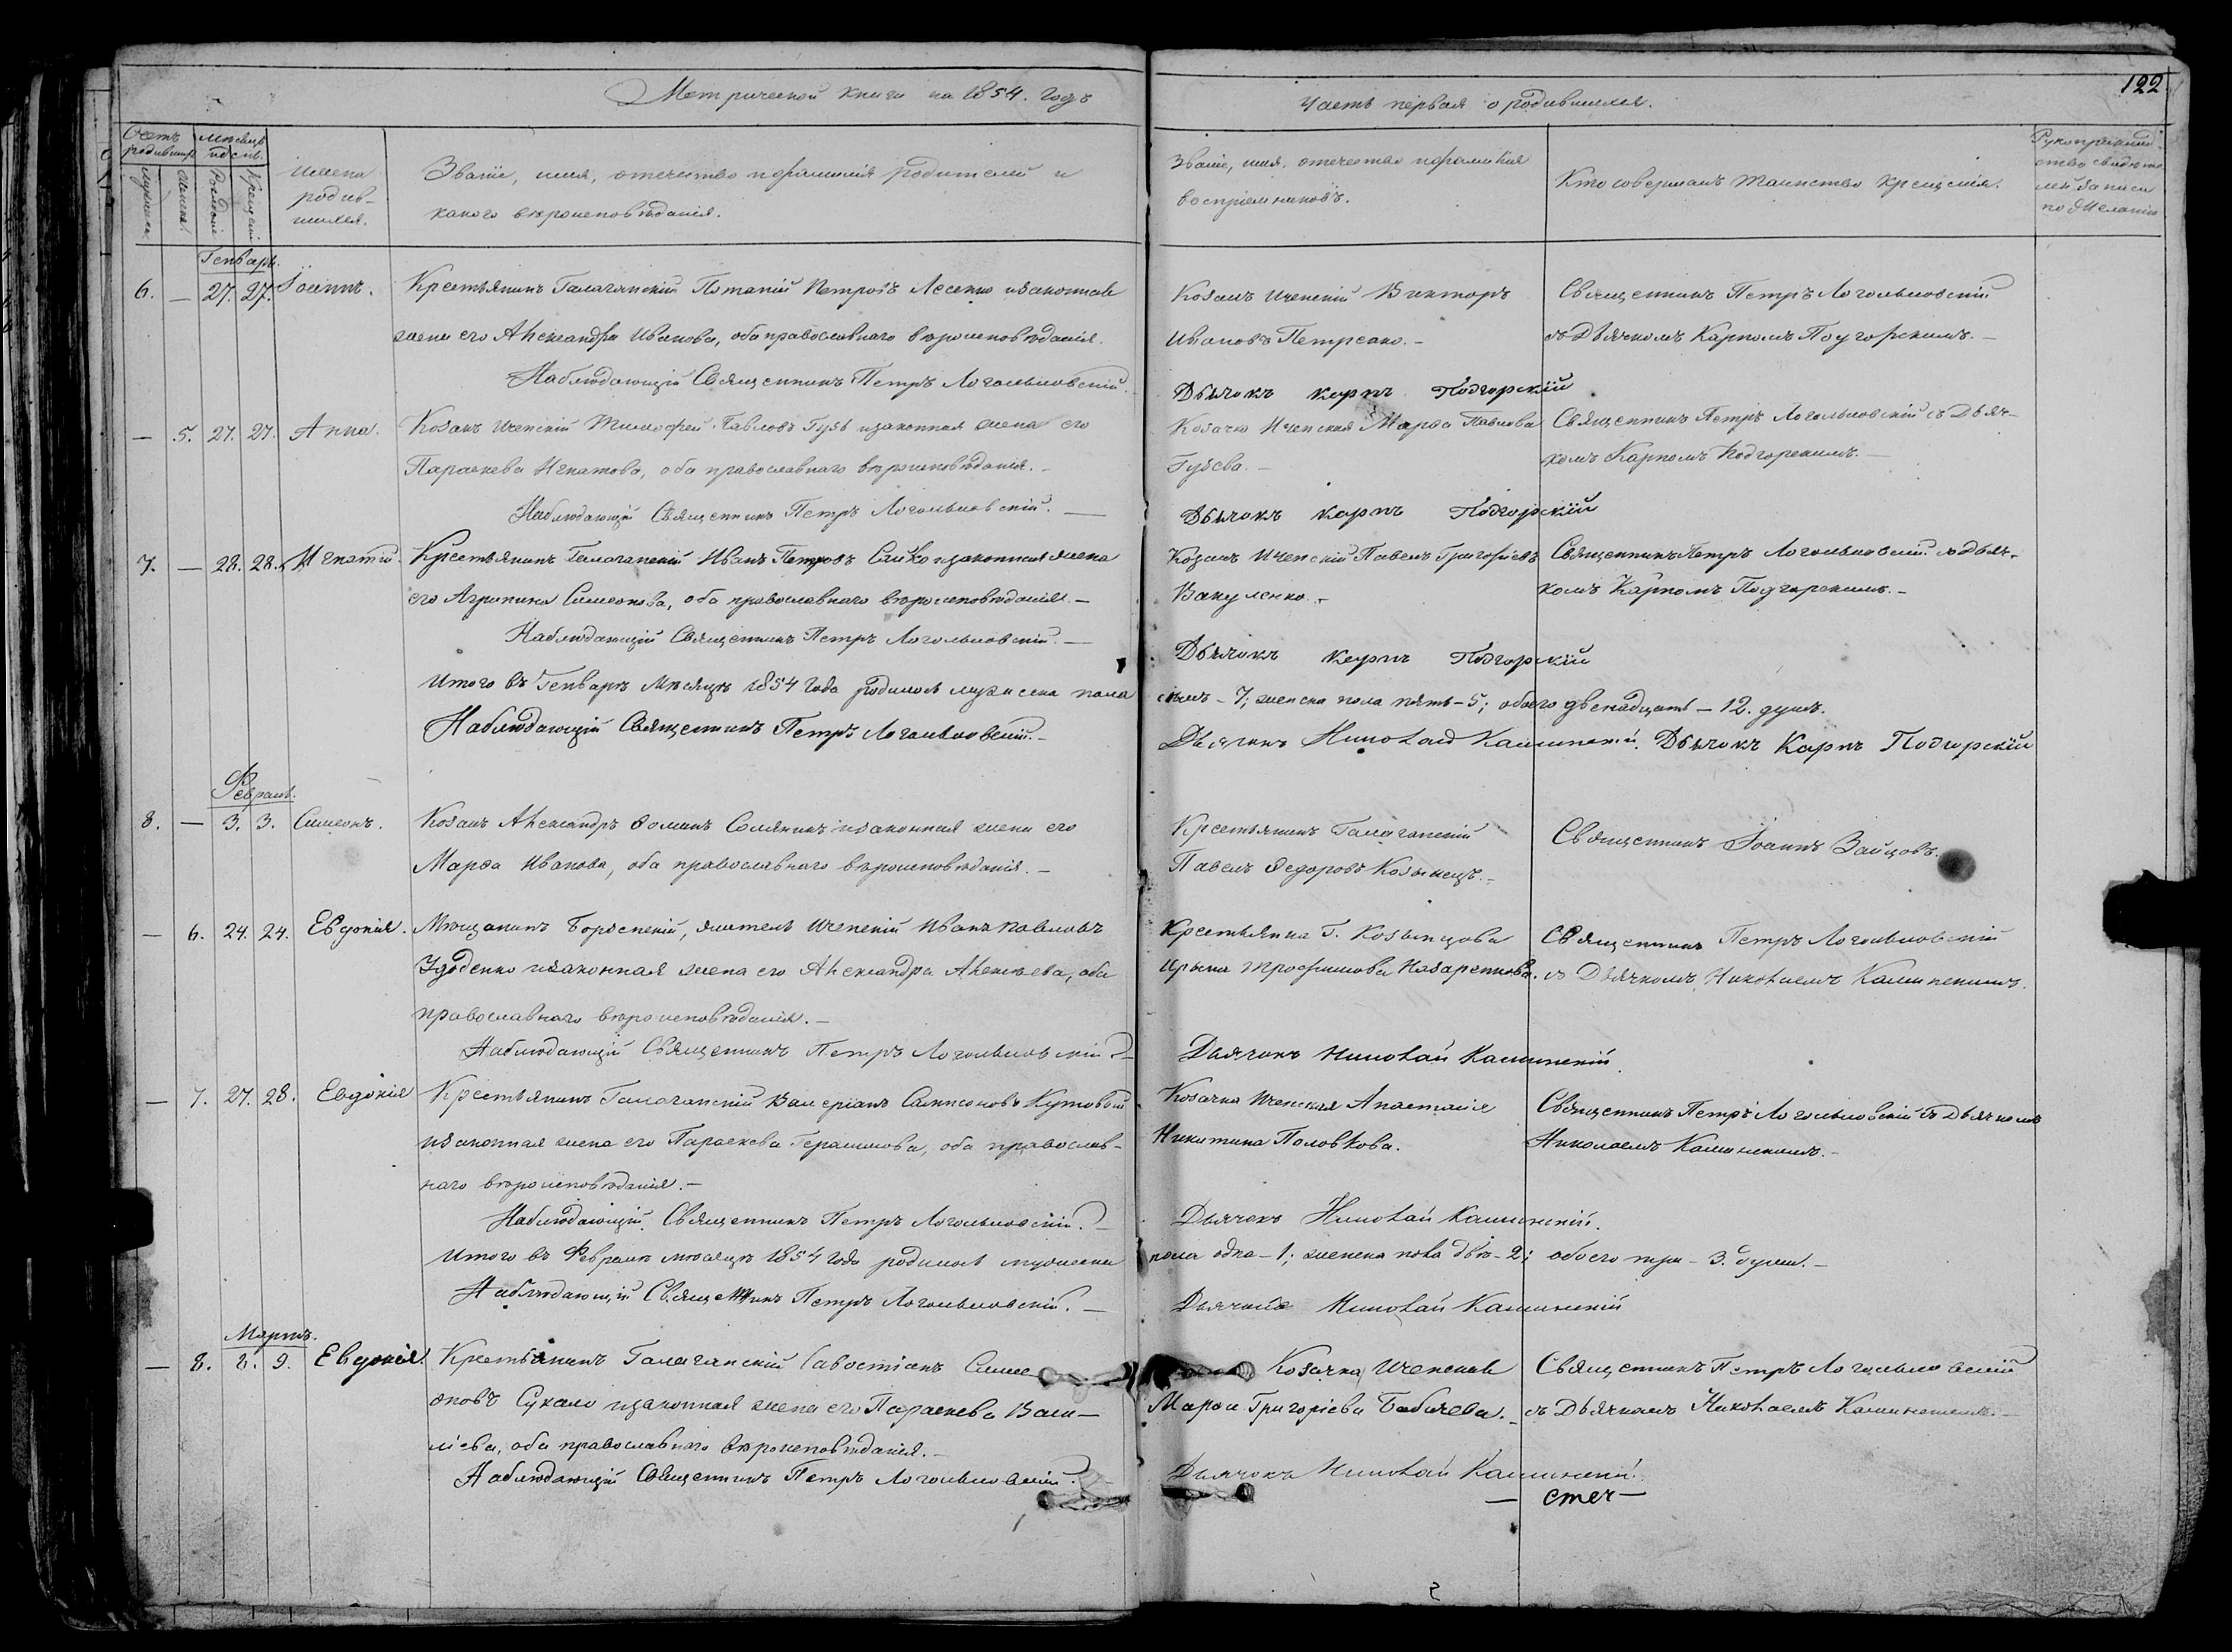 Метрической книги на 1854. годъ
Часть первая о родившихся.
122
Счетъ родившихся
Мѣсяцъ и день.
Мужеска.
Женска.
Рожденіе
Крещеніе
Имена
родив-
шихся.
Званіе, имя, отчество и фамилія родителей и
какого вѣроисповѣданія.
Званіе, имя, отчество и фамилія
воспріемниковъ.
Кто совершалъ таинство крещенія.
Рукоприклад-
ство свидѣте
лей записи
по желанію
Генварь.
6. — 27. 27. Іоаннъ.
Крестьянинъ Галаганскій Потапій Петровъ Лесенко и законная
жена его Александра Иванова, оба православнаго вѣроисповѣданія.
Наблюдающій Священникъ Петръ Логольмовскій.
Козакъ Иченскій Викторъ
Ивановъ Петренко. –
Священникъ Петръ Логольмовскій
съ Дьячкомъ Карпомъ Подгорскимъ. –
Дьячокъ Карпъ Подгорскій
— 5. 27. 27. Анна.
Козакъ Иченскій Тимофей Павловъ Гузь и законная жена его
Параскева Игнатова, оба православнаго вѣроисповѣданія. –
Наблюдающій Священникъ Петръ Логольмовскій. —
Козачка Иченская Марѳа Павлова
Гузева. –
Священникъ Петръ Логольмовскій съ Дьяч-
комъ Карпомъ Подгорскимъ. —
Дьячокъ Карпъ Подгорскій
7. — 28. 28. Игнатій.
Крестьянинъ Галаганскій Иванъ Петровъ Сайко и законная жена
его Агрипина Симеонова, оба православнаго вѣроисповѣданія. –
Наблюдающій Священникъ Петръ Логольмовскій. —
Козакъ Иченскій Павелъ Григорьевъ
Вакуленко. –
Священникъ Петръ Логольмовскій съ Дьяч-
комъ Карпомъ Подгорскимъ. –
Дьячокъ Карпъ Подгорскій
Итого въ Генварѣ Мѣсяцѣ 1854 года родилось мужеска пола
семь – 7; женска пола пять – 5; обоего двенадцать – 12. душъ.
Наблюдающій Священникъ Петръ Логольмовскій. –
Дьячокъ Николай Калинскій. Дьячокъ Карпъ Подгорскій
Февраль.
8. — 3. 3. Симеонъ.
Козакъ Александръ Ѳоминъ Соляникъ и законная жена его
Марѳа Иванова, оба православнаго вѣроисповѣданія. –
Крестьянинъ Галаганскій
Павелъ Ѳедоровъ Козынецъ. –
Священникъ Іоаннъ Зайцовъ.
— 6. 24. 24. Евдокія.
Мѣщанинъ Борзенскій, житель Иченскій Иванъ Павловъ
Удоденко и законная жена его Александра Алексѣева, оба
православнаго вѣроисповѣданія. –
Наблюдающій Священникъ Петръ Логольмовскій
Крестьянка Г. Козынцова
Ирина Трофимова Назаренкова.
Священникъ Петръ Логольмовскій
съ Дьячкомъ Николаемъ Калинскимъ.
Дьячокъ Николай Калинскій.
— 7. 27. 28. Евдокія
Крестьянинъ Галаганскій Валеріанъ Сампсоновъ Кутовый
и законная жена его Параскева Герасимова, оба православ-
наго вѣроисповѣданія. –
Наблюдающій Священникъ Петръ Логольмовскій. –
Козачка Иченская Анастасія
Никитина Половкова.
Священникъ Петръ Логольмовскій съ Дьячкомъ
Николаемъ Калинскимъ. –
Дьячокъ Николай Калинскій.
Итого въ Февралѣ мѣсяцѣ 1854 года родилось мужеска
пола одна – 1; женска пола двѣ – 2; обоего три – 3. души. –
Наблюдающій Священникъ Петръ Логольмовскій. —
Дьячокъ Николай Калинскій
Мартъ.
— 8. 8. 9. Евдокія.
Крестьянинъ Галаганскій Савостіанъ Симе
оновъ Сукало и законная жена его Параскева Васи—
ліева, оба православнаго вѣроисповѣданія. –
Наблюдающій Священникъ Петръ Логольмовскій.
Козачка Иченская
Марѳа Григоріева Бабичева. –
Священникъ Петръ Логольмовскій
съ Дьячкомъ Николаемъ Калинскимъ. –
Дьячокъ Николай Калинскій.